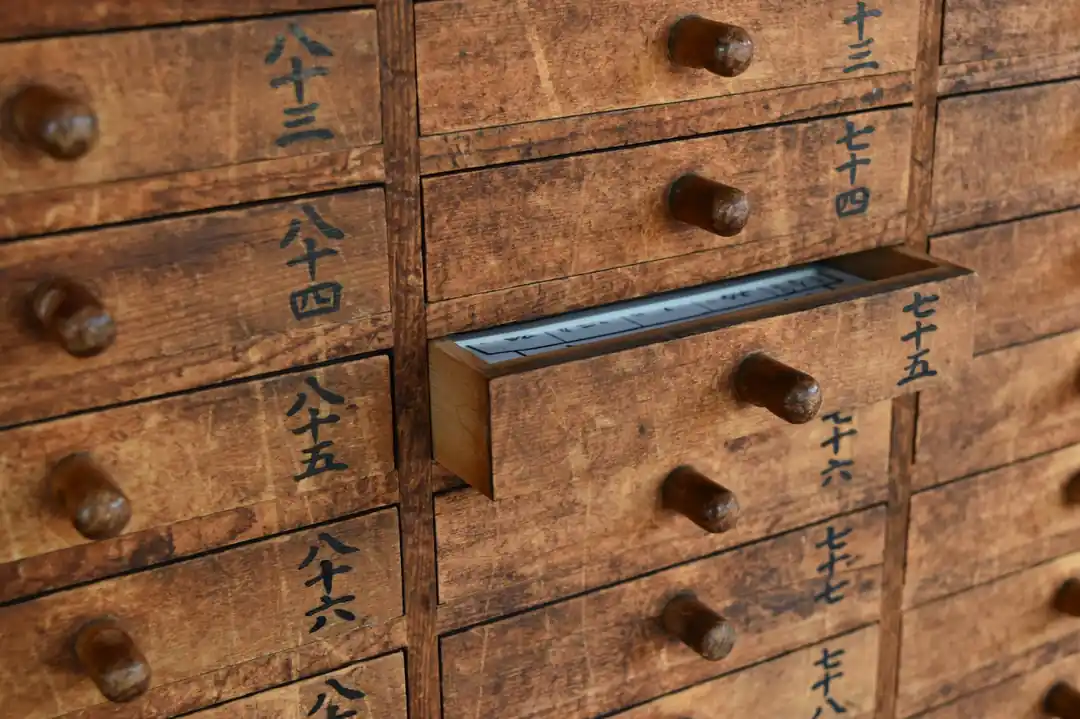 八十三
八十四
八十五
八十六
十三
七十四
七十五
十六
七十七
七十八